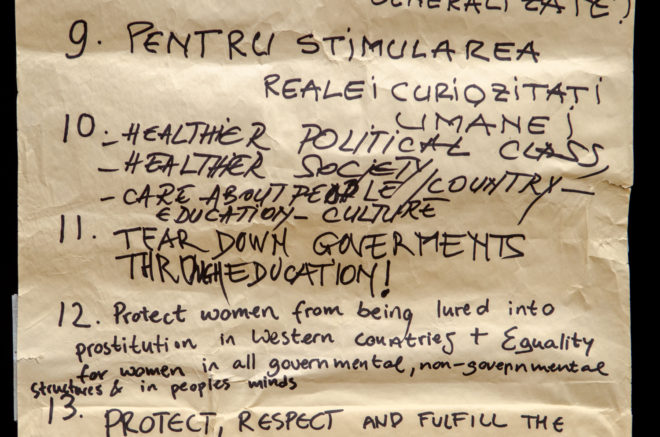 GENERALIZATE!
9. PENTRU STIMULAREA
REALEI CURIOZITATI
UMANE!
10. - HEALTHIER POLITICAL CLASS
- HEALTHER SOCIETY
- CARE ABOUT PEOPLE/COUNTRY -
EDUCATION - CULTURE
11. TEAR DOWN GOVERMENTS
THROUGH EDUCATION!
12. Protect women from being lured into
prostitution in Western countries + Equality
for women in all governmental, non-governmental
structures & in peoples minds
13. PROTECT, RESPECT AND FULFILL THE